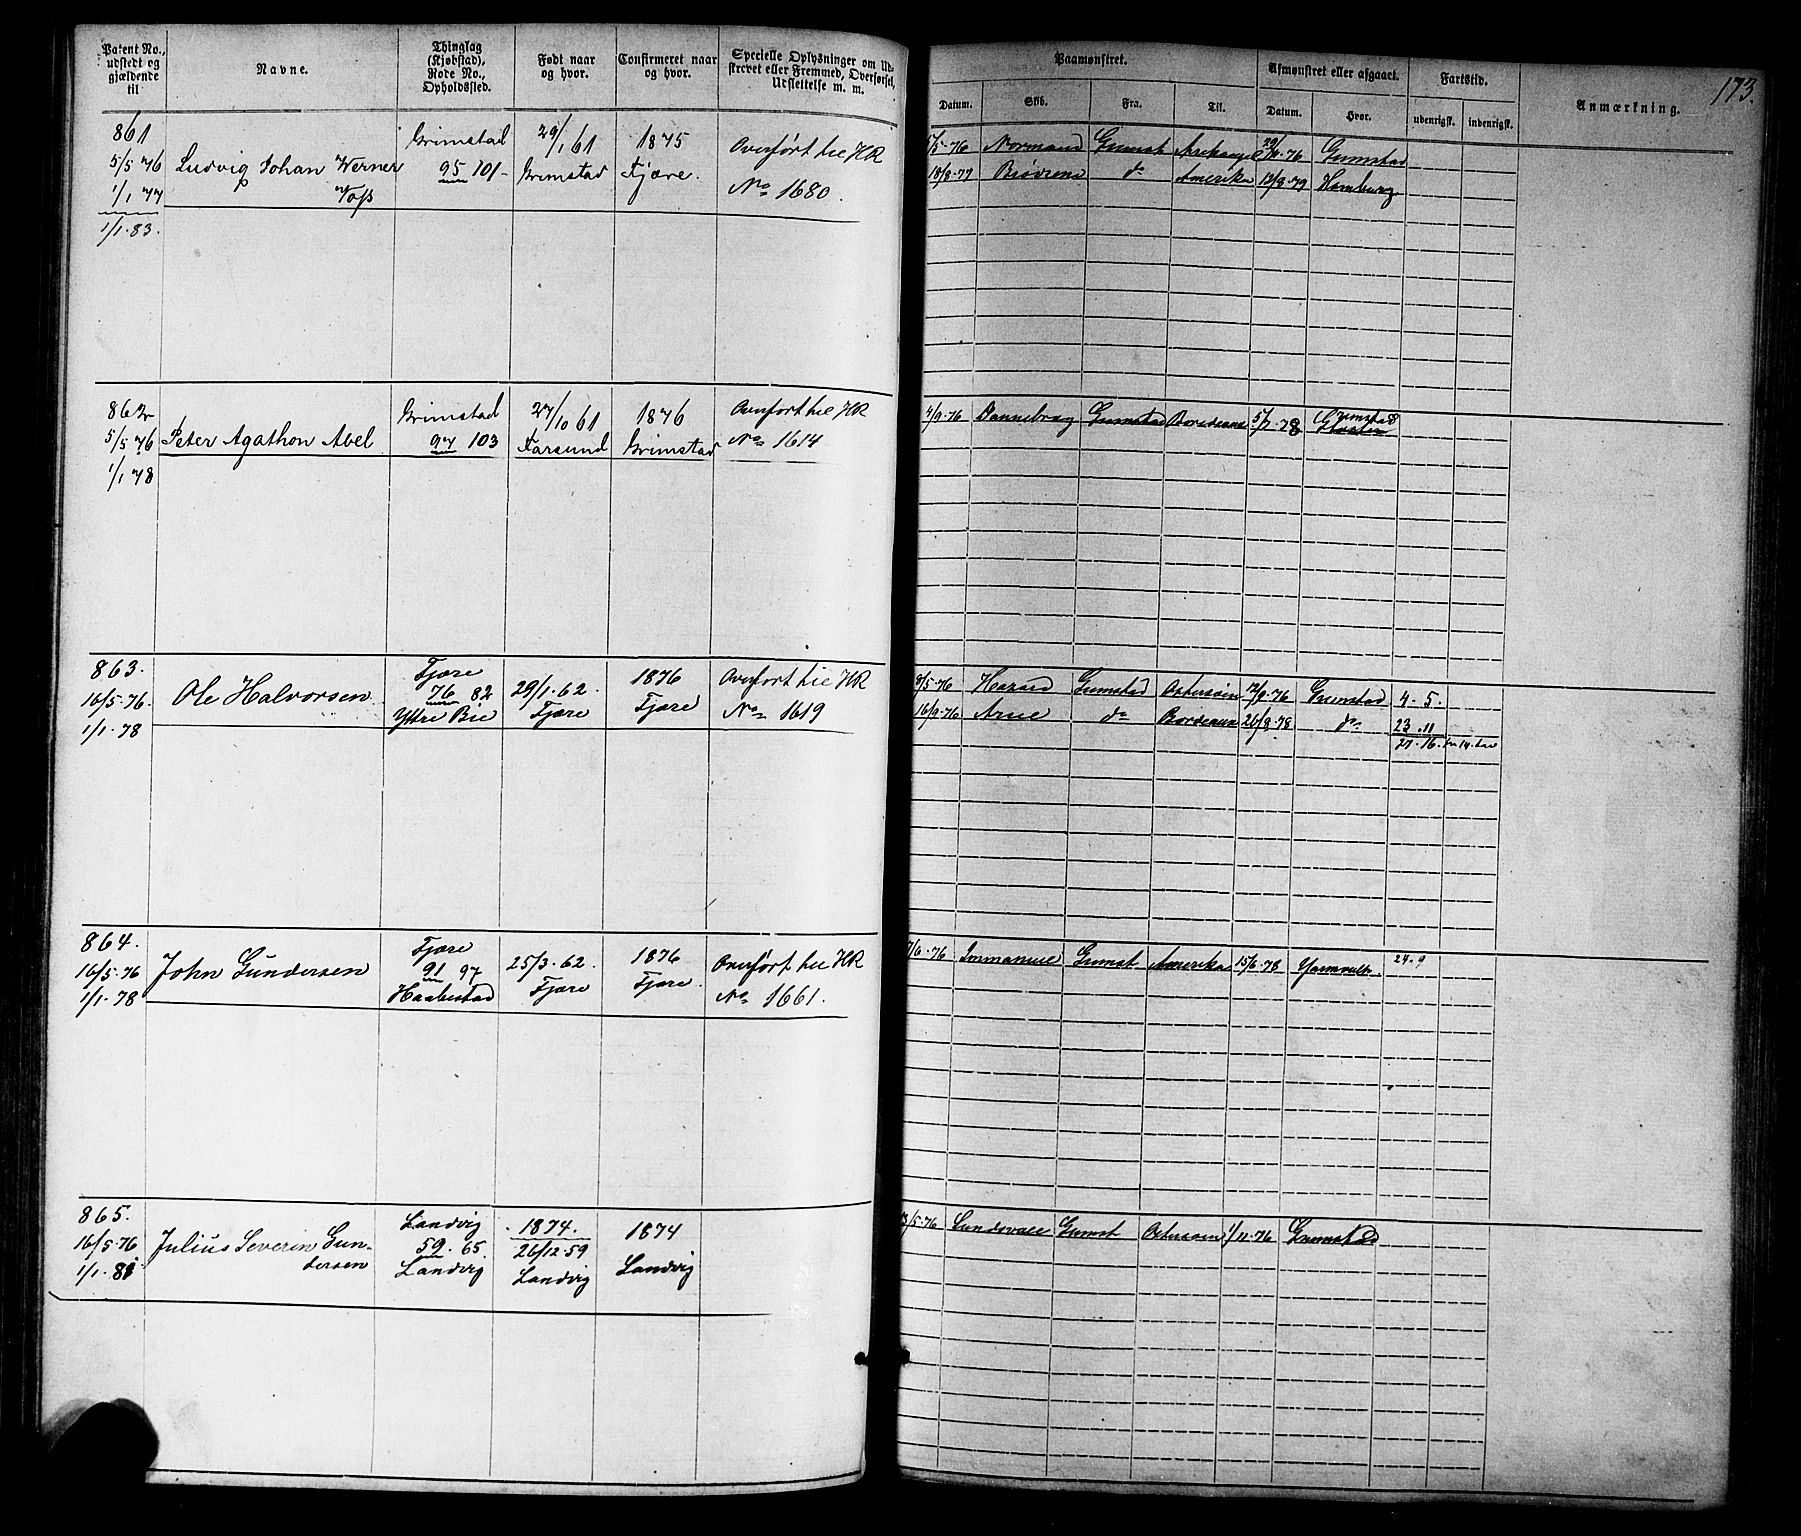 173.
Patent No., udstedt og gjældende til
Navne.
Thinglag (Kjøbstad), Rode No., Opholdssted.
Født naar og hvor.
Confirmeret naar og hvor.
Specielle Oplysninger om Udskrevet eller Fremmed, Overførsel, Udslettelse m. m.
Paamønstret.
Afmønstret eller afgaaet.
Fartstid.
Anmærkning.
Datum.
Skib.
Fra.
Til.
Datum.
Hvor.
udenrigsk.
indenrigsk.
861
5/5 76
1/1 77
1/1.83.
Ludvig Johan Werner
Voss
Grimstad
95 101-
29/1 61
Grimstad
1875
Fjære.
Overført til HR
No 1680.
Normand Grimst Arkangel 76 Grimstad
18/8-77 d° Amerika 12/8-79 Hamburg
862
5/5 76
1/1 78
Peter Agathon Abel
Grimstad
97 103
27/10 61
Farsund
1876
Grimstad
Overført til HR
No 1614
4/9-76 Dannebrog Grimstad Bordeaux 5/7-78 Grimstad
863.
16/5-76.
1/1-78
Ole Halvorsen
Fjære
76 82
Yttre Bie
29/1-62.
Fjære
1876
Fjære
Overført til HR
No 1619
/5-76 Grimstad Østersøen 12/9-76 Grimstad 4-5.
16/9-76 Arne d° Bordeaux 26/8-78 d° 23.11
27-16.
864.
16/5-76
1/1-78
John Gundersen
Fjære
91 97
Haabestad
25/3-62.
Fjære
1876
Fjære.
Overført til HR
No 1661.
7/6-76 Immanuel Grimst Amerika 15/6-78 24-9
865.
16/5-76
1/1-81
Julius Severin Gun-
dersen
Landvig
59. 65
Landvig
1874.
26/12-59
Landvig
1874
Landvig
/5-76 Sundsvall Grimst Østersøen 1/11-76 Grimstad